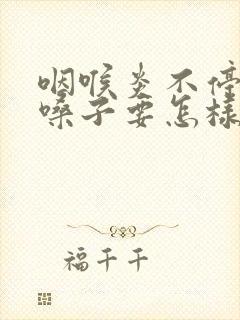 咽喉炎不停
嗓子要怎样
福千千